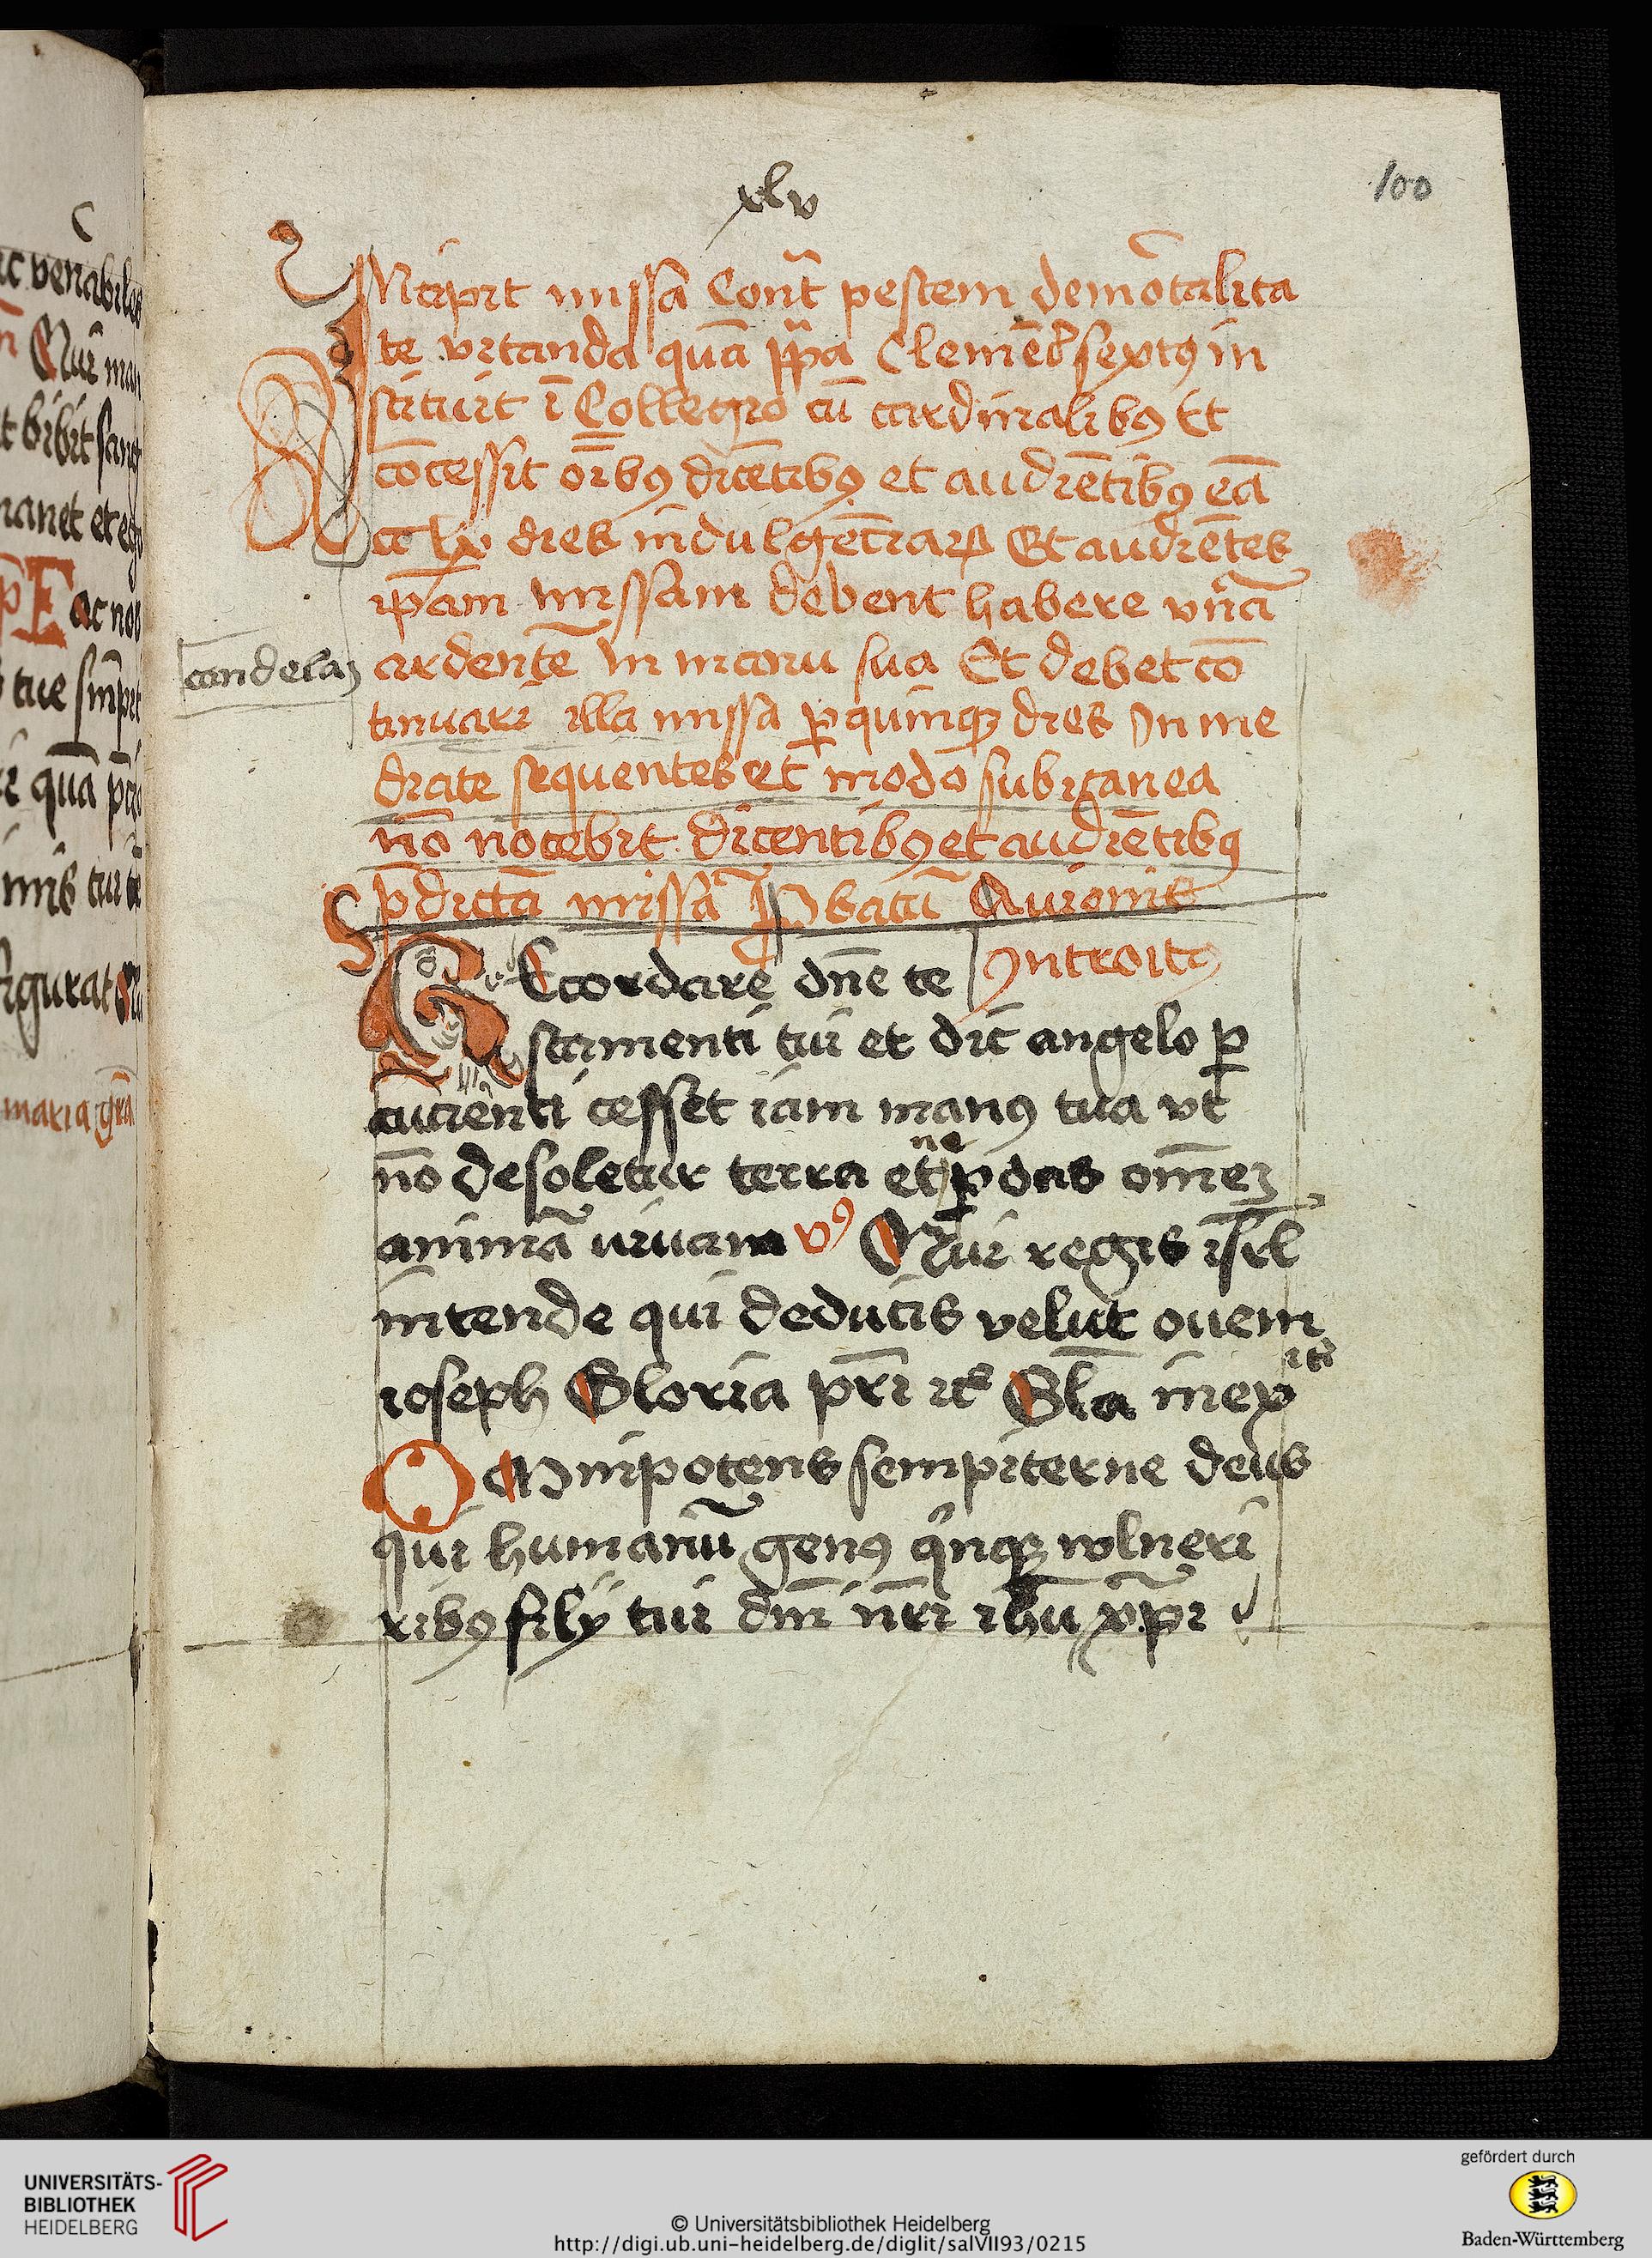 xlv
100
INcipit missa Cont̃ pestem de mõtalita
te vitanda quã pp̃a Clemẽs sextꝰ in
stituit ĩ Collegio cũ cardinalibꝰ Et
cõcessit oĩbꝰ dicẽtibꝰ et audiẽtibꝰ eã
cc lx dies indulgẽciaꝝ Et audiẽtes
ip̃am missam debent habere vnã
candelaʒ
ardentẽ in manu sua Et debet cõ
tinuari illa missa ꝑ quinqʒ dies In me
diate sequentes et modo subitanea
nõ nocebit dicentibꝰ et audiẽtibꝰ
p̃dictã missã ꝓbatũ Auionis
REcordare dñe te
Introitꝰ
stamenti tui et dic angelo ꝑ
cucienti cesset iam manꝰ tua vt
nõ desoletur terra et ne ꝑdas om̃eʒ
animã viuam vꝰ Qui regis isrl
intende qui deducis velut ouem
ioseph Gloria pr̃i etc̃ Gl̃a in ex
etc̃
OMnipotens sempiterne deus
qui humanũ genꝰ q̃nqʒ wlneri
ribꝰ filÿ tui dñi nr̃i ih̃u xp̃i
c
ac venabiles
Qui man
t bibit sang
manet et ego
P Fac nob
tue
quã
nis tui
figurat
maria gr̃a
UNIVERSITÄTS-
BIBLIOTHEK
HEIDELBERG
© Universitätsbibliothek Heidelberg
http://digi.ub.uni-heidelberg.de/diglit/salVII93/0215
gefördert durch
Baden-Württemberg